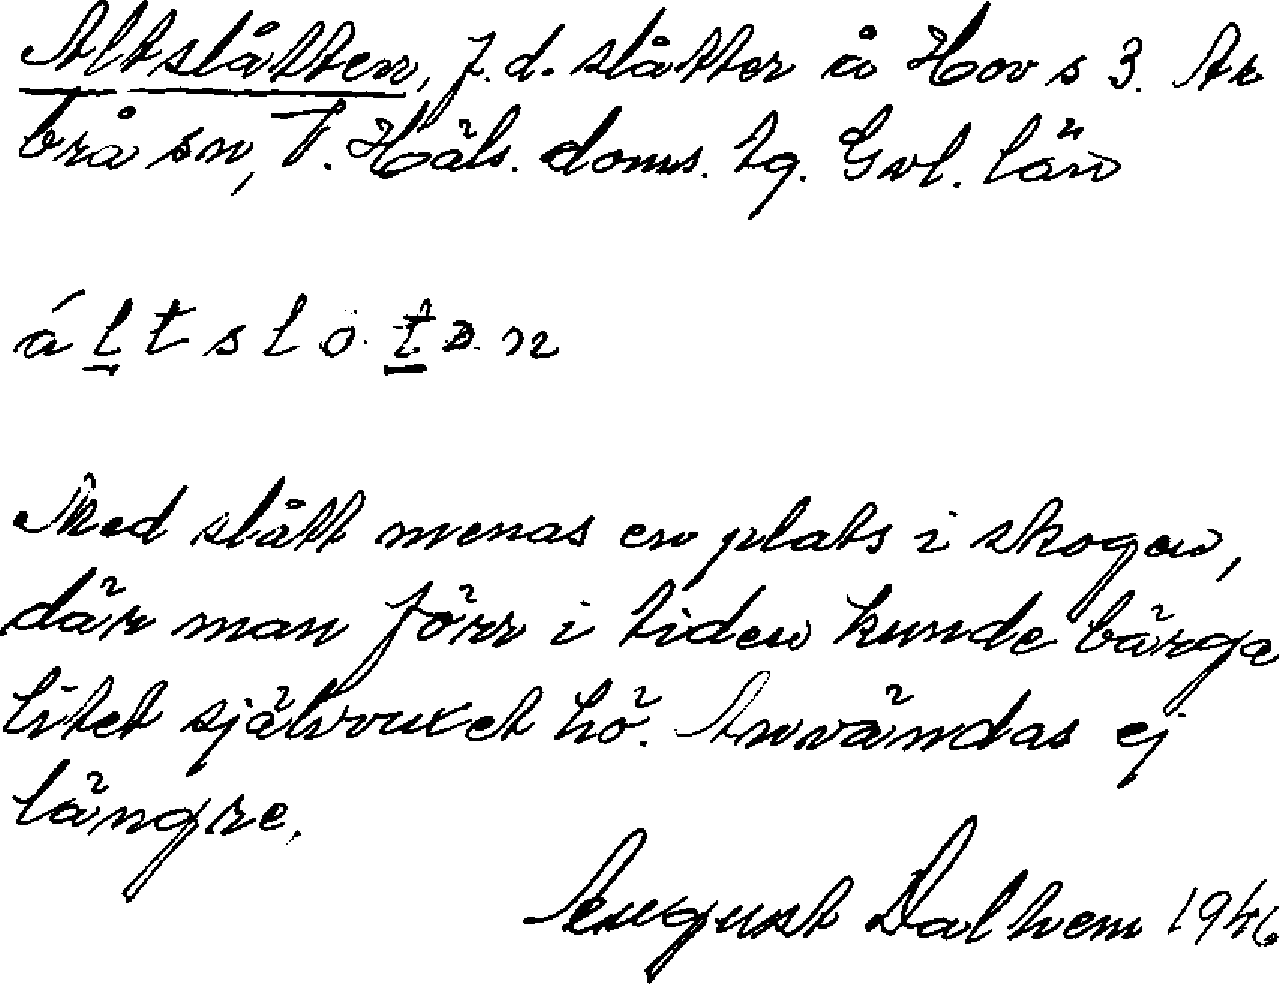 Altslåtten, f.d. slåtter å Hov s 3. Ar
brå sn, V. Häls. doms. tg. Gvl. län
á l t s l o. t ə. n
Med slått menas en plats i skogen,
där man förr i tiden kunde bärga
litet självvuxet hö. Användas ej
längre.
August Dalhem 1946.